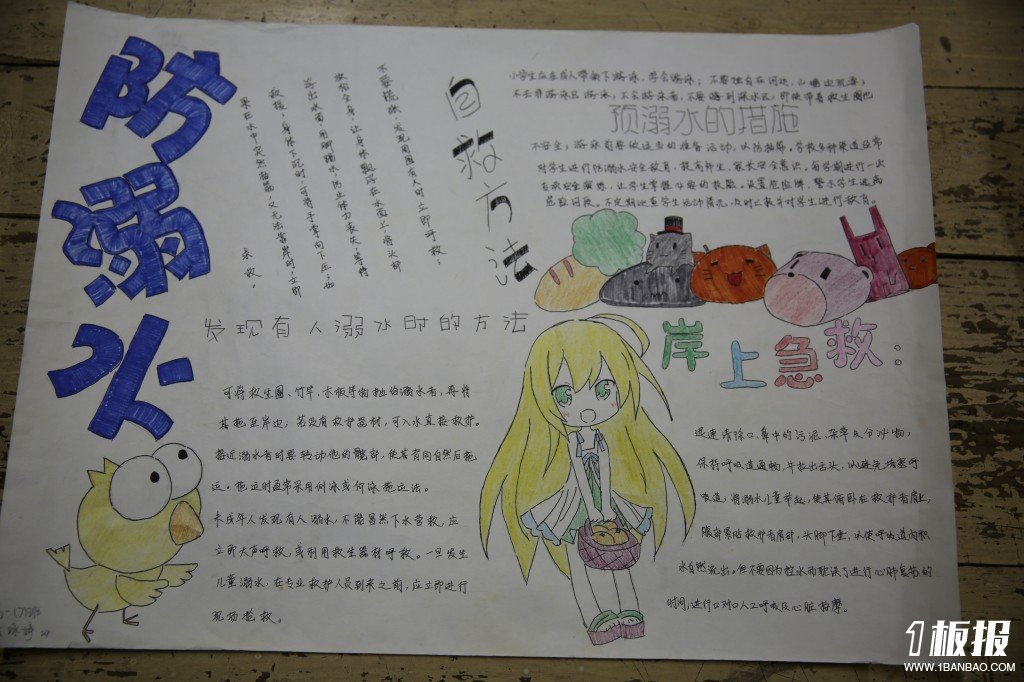 防溺水
自救方法
不要慌张，发现周围有人时立即呼救；
放松全身，让身体飘浮在水面上，将头部
浮出水面，用脚踢水，防止体力丧失，等待
救援；身体下沉时，可将手掌向下压；如
果在水中突然抽筋，又无法靠岸时，立即
求救。
小学生应在成人带领下游泳，学会游泳；不要独自在河边、山塘边玩耍；
不去非游泳区游泳；不会游泳者，不要游到深水区，即使带着救生圈也
预溺水的措施
不安全；游泳前要做适当的准备活动，以防抽筋。学校多种渠道经常
对学生进行防溺水安全教育，提高师生、家长安全意识。每学期进行一次
自救安全演练，让学生掌握必要的救援。设置危险牌，警示学生远离
危险河段。不定期巡查学生活动情况，及时上报并对学生进行教育。
发现有人溺水时的方法
可将救生圈、竹竿、木板等物抛给溺水者，再将
其拖至岸边；若没有救护器材，可入水直接救护。
接近溺水者时要转动他的髋部，使其背向自然后拖
运。拖运时通常采用侧泳或仰泳拖运法。
未成年人发现有人溺水，不能冒然下水营救，应
立即大声呼救，或利用救生器材呼救。一旦发生
儿童溺水，在专业救护人员到来之前，应立即进行
现场抢救。
岸上急救：
迅速清除口、鼻中的污泥、杂草及分泌物，
保持呼吸道通畅，并拉出舌头，以避免堵塞呼
吸道；将溺水儿童举起，使其俯卧在救护者肩上，
腹部紧贴救护者肩部，头脚下垂，以使呼吸道内积
水自然流出。但不要因为控水而耽误了进行心肺复苏的
时间；进行口对口人工呼吸及心脏按摩。
1板报
WWW.1BANBAO.COM